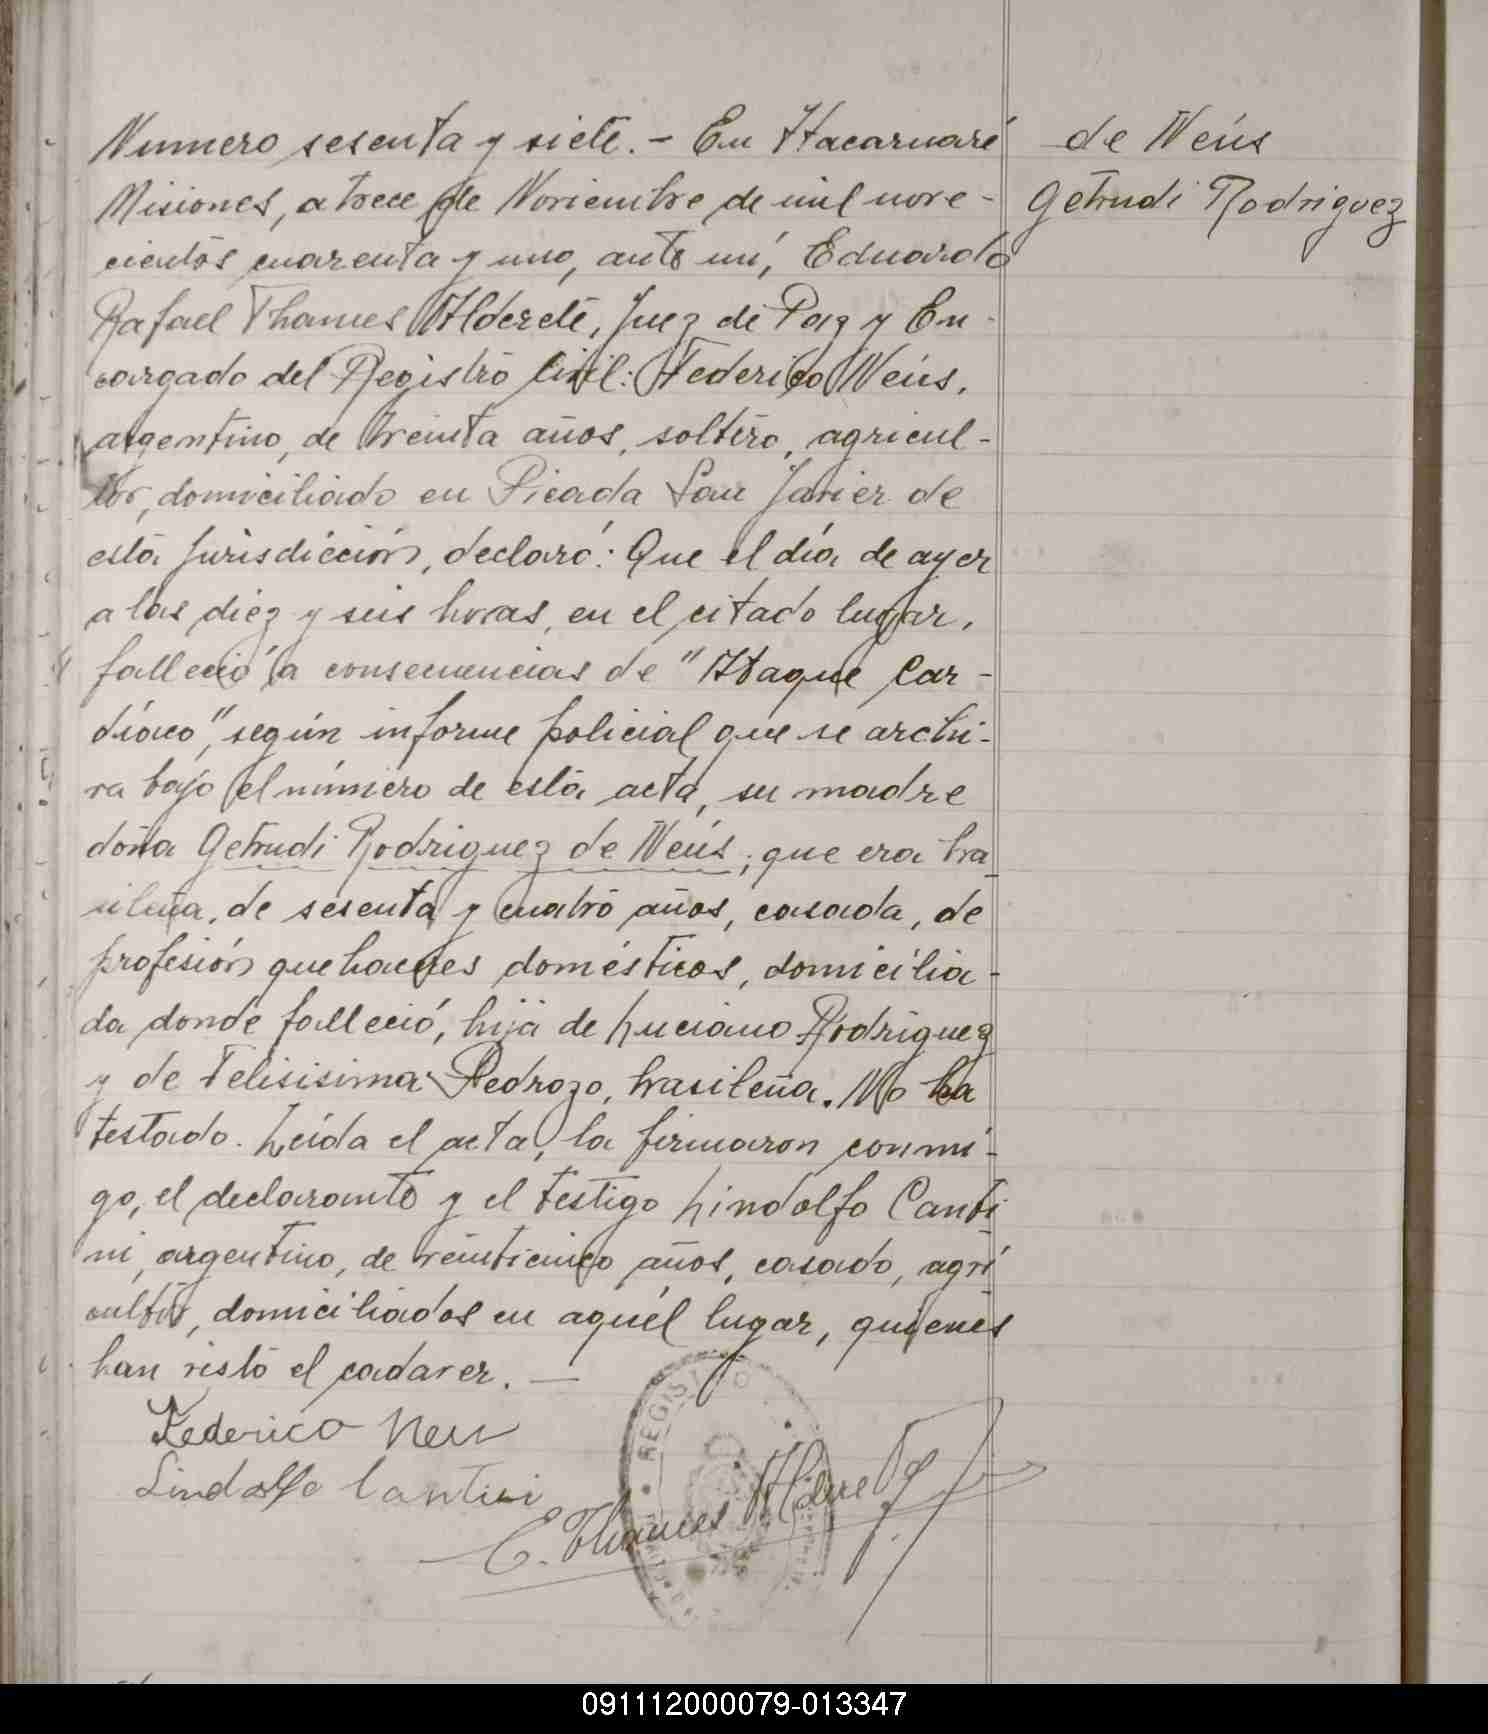 Numero sesenta y siete. - En Itacaruaré
Misiones, a trece de Noviembre de mil nove-
cientos cuarenta y uno, ante mí, Eduardo
Rafael Thames Alderete, Juez de Paz y En-
cargado del Registro Civil: Federico Neús,
argentino, de treinta años, soltero, agricul-
tor, domiciliado en Picada San Javier de
esta jurisdicción, declaró: Que el día de ayer
a las diez y seis horas, en el citado lugar,
falleció a consecuencias de "Ataque Car-
díaco", según informe policial que se archi-
va bajo el número de esta acta, su madre
doña Getrudi Rodriguez de Neús; que era bra
sileña, de sesenta y cuatro años, casada, de
profesión quehaceres domésticos, domicilia-
da donde falleció, hija de Luciano Rodriguez
y de Felisisima Pedrozo, brasileña. No ha
testado. Leída el acta, la firmaron conmi-
go, el declarante y el testigo Lindolfo Canti
ni, argentino, de veinticinco años, casado, agri
cultor, domiciliados en aquél lugar, quienes
han visto el cadaver. —
Federico Neu
Lindolfo Cantini
E. Thames Alderete
REGISTRO
de Neús
Getrudi Rodriguez
091112000079-013347